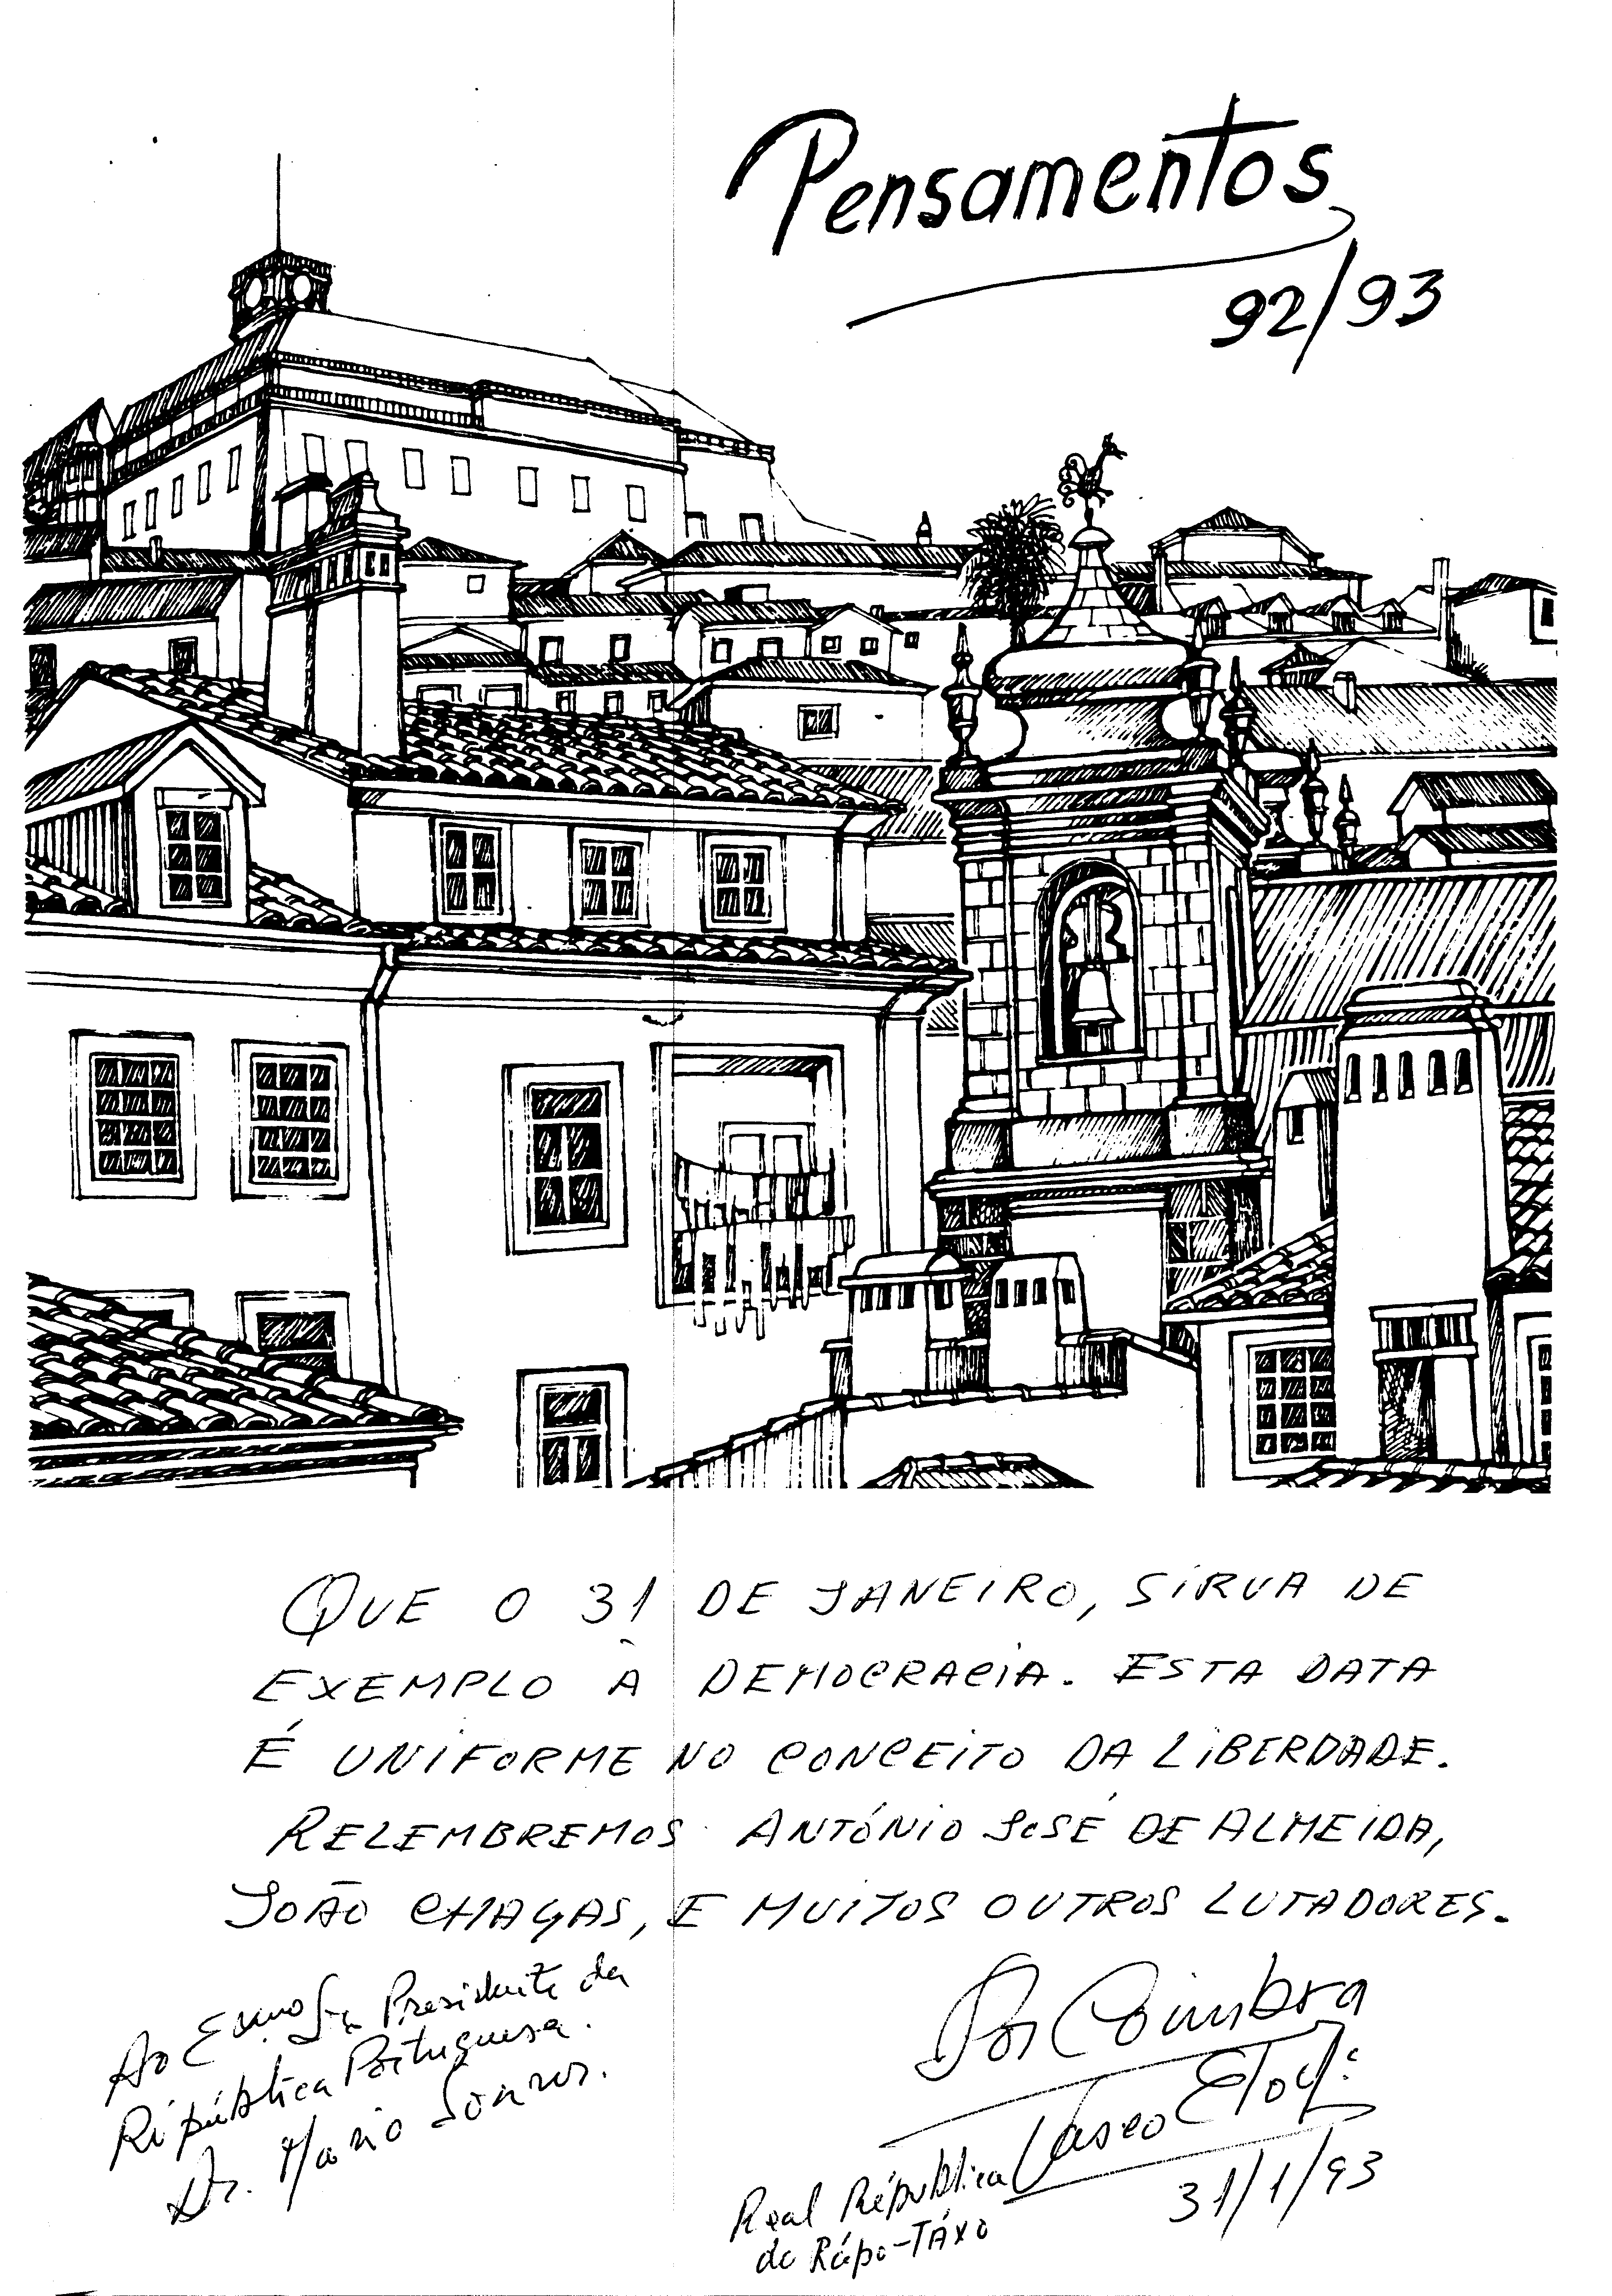 Pensamentos
92/93
QUE O 31 DE JANEIRO, SIRVA DE
EXEMPLO À DEMOCRACIA. ESTA DATA
É UNIFORME NO CONCEITO DA LIBERDADE.
RELEMBREMOS ANTÓNIO JOSÉ DE ALMEIDA,
JOÃO CHAGAS, E MUITOS OUTROS LUTADORES.
Ao Exmo Sr. Presidente da
República Portuguesa.
Dr. Mário Soares.
Por Coimbra
Vasco Eloy
Real República
do Rápo-Táxo
31/1/93